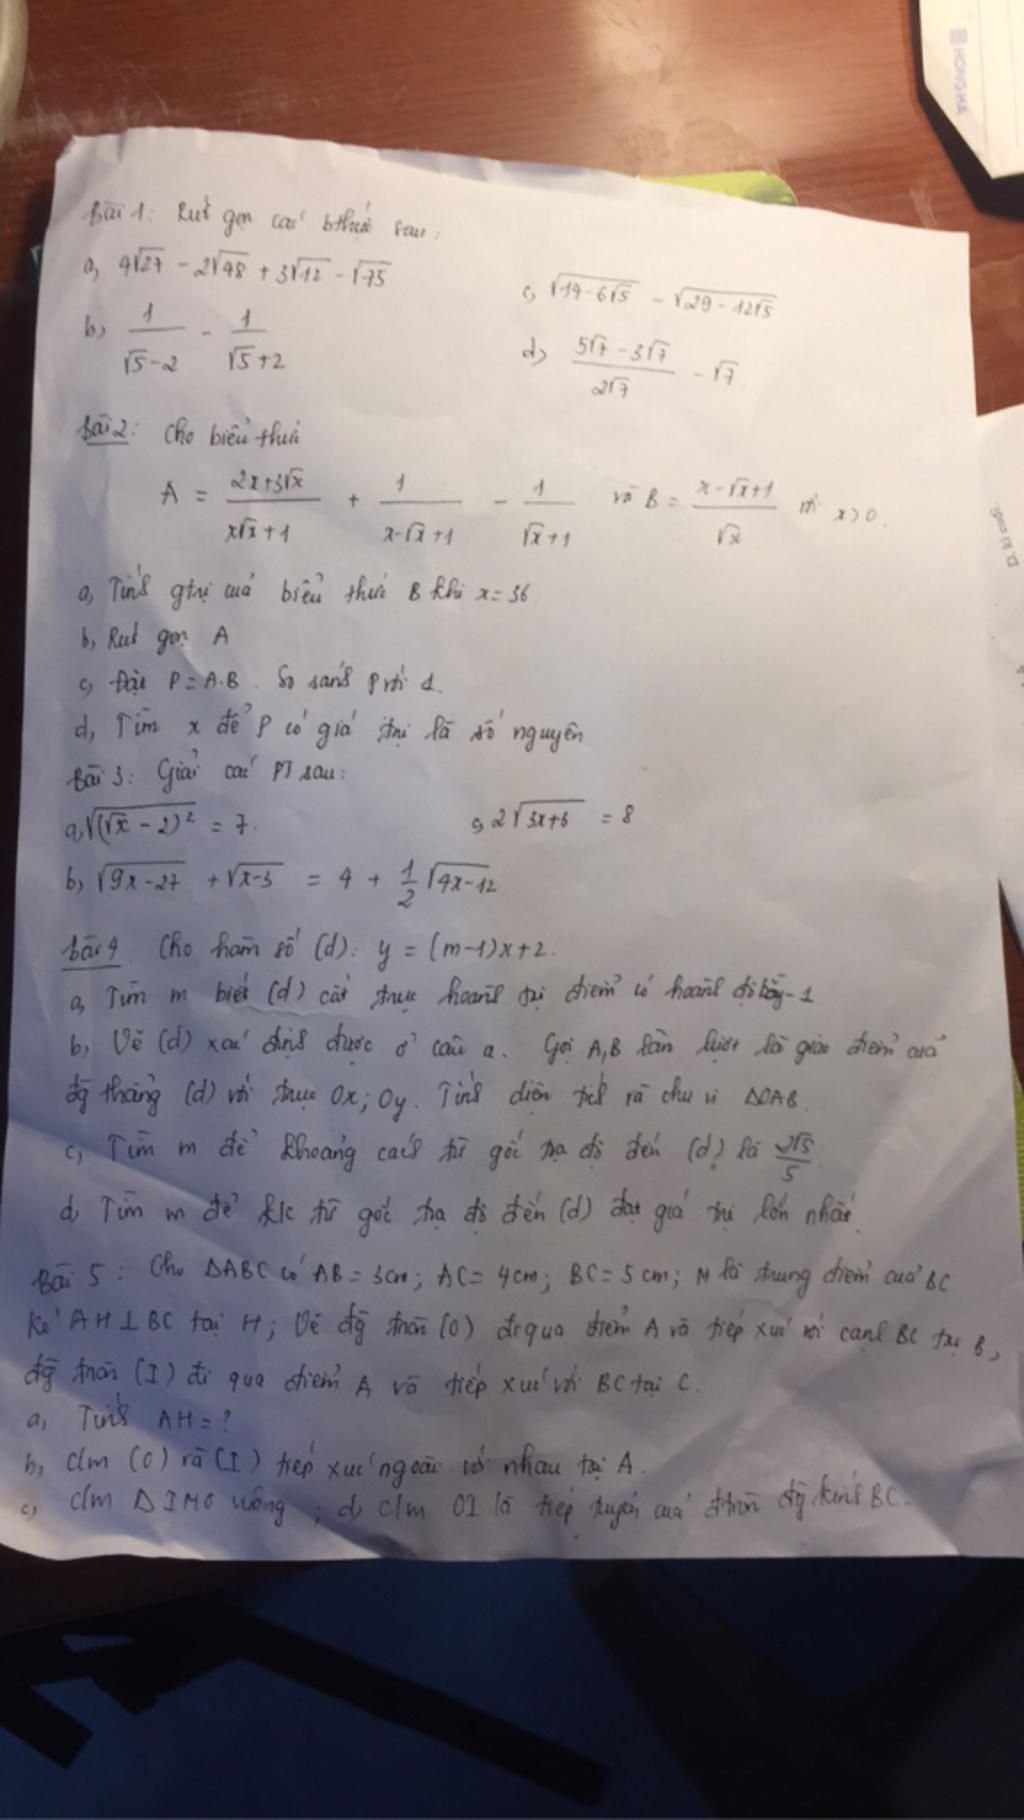 HONG HA
Bài 1: Rút gọn các bthức sau:
a, 4√27 - 2√48 + 3√12 - √75
c, √(14-6√5) - √(29-12√5)
b, 1/(√5-2) - 1/(√5+2)
d, (5√7-3√7)/(2√7) - √7
Bài 2: Cho biểu thức
A = (2x+3√x)/(x√x+1) + 1/(x-√x+1) - 1/(√x+1) và B = (x-√x+1)/√x với x>0.
a, Tính gtrị của biểu thức B khi x=36.
b, Rút gọn A
c, Đặt P=A.B. So sánh P với 1.
d, Tìm x để P có giá trị là số nguyên
Bài 3: Giải các PT sau:
a, √((√x-2)²) = 7.
c, 2√(3x+6) = 8
b, √(9x-27) + √(x-3) = 4 + 1/2 √(4x-12)
Bài 4. Cho hàm số (d): y = (m-1)x+2.
a, Tìm m biết (d) cắt trục hoành tại điểm có hoành độ bằng -1
b, Vẽ (d) xác định được ở câu a. Gọi A,B lần lượt là giao điểm của
đg thẳng (d) với trục Ox; Oy. Tính diện tích và chu vi ΔOAB.
c, Tìm m để khoảng cách từ gốc tọa độ đến (d) là 2√5/5
d, Tìm m để k/c từ gốc tọa độ đến (d) đạt giá trị lớn nhất.
Bài 5: Cho ΔABC có AB=3cm; AC=4cm; BC=5cm; M là trung điểm của BC
Kẻ AH⊥BC tại H; Vẽ đg tròn (O) đi qua điểm A và tiếp xúc với cạnh BC tại B,
đg tròn (I) đi qua điểm A và tiếp xúc với BC tại C.
a, Tính AH=?
b, c/m (O) và (I) tiếp xúc ngoài với nhau tại A.
c, c/m ΔIMO vuông; d, c/m OI là tiếp tuyến của đtròn đg kính BC.